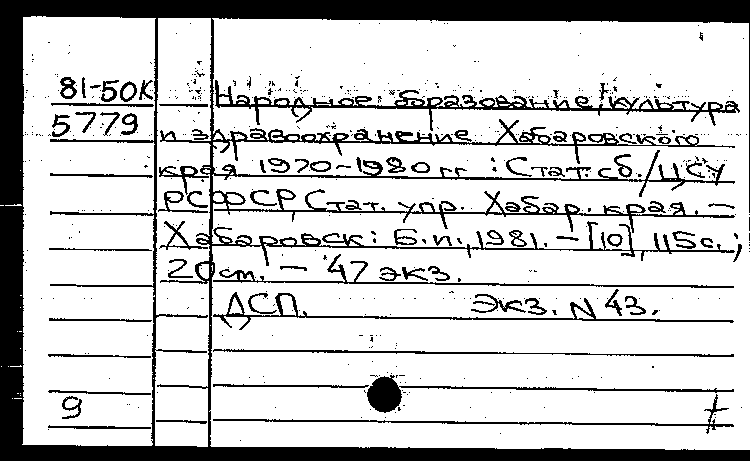 81-50К Народное образование, культура
5779 и здравоохранение Хабаровского
края 1970-1980 гг : Стат. сб. / ЦСУ
РСФСР, Стат. упр. Хабар. края. —
Хабаровск: Б.и., 1981. — [10], 115 с.;
20 см. — 47 экз.
ДСП. Экз. N 43.
9 +